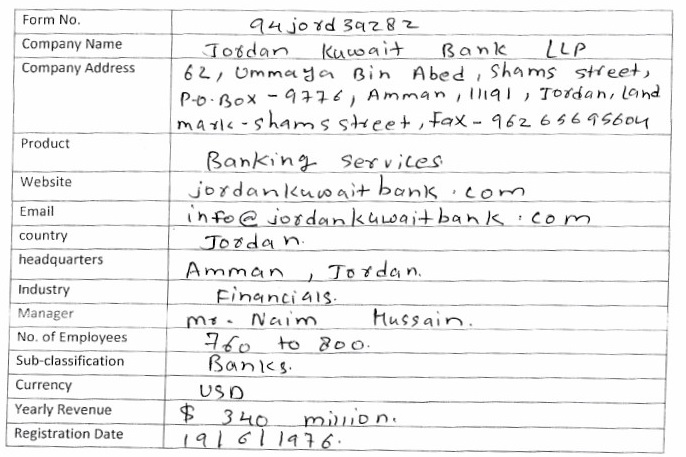 Form No. 94jord39282
Company Name Jordan Kuwait Bank LLP
Company Address 62, Ummaya Bin Abed, Shams street,
P.O.Box - 9776, Amman, 11191, Jordan, land
mark - shams street, Fax - 962 65695604
Product Banking services.
Website jordankuwaitbank.com
Email info@jordankuwaitbank.com
country Jordan.
headquarters Amman, Jordan.
Industry Financials.
Manager Mr. Naim Hussain.
No. of Employees 760 to 800.
Sub-classification Banks.
Currency USD
Yearly Revenue $ 340 million.
Registration Date 19/6/1976.